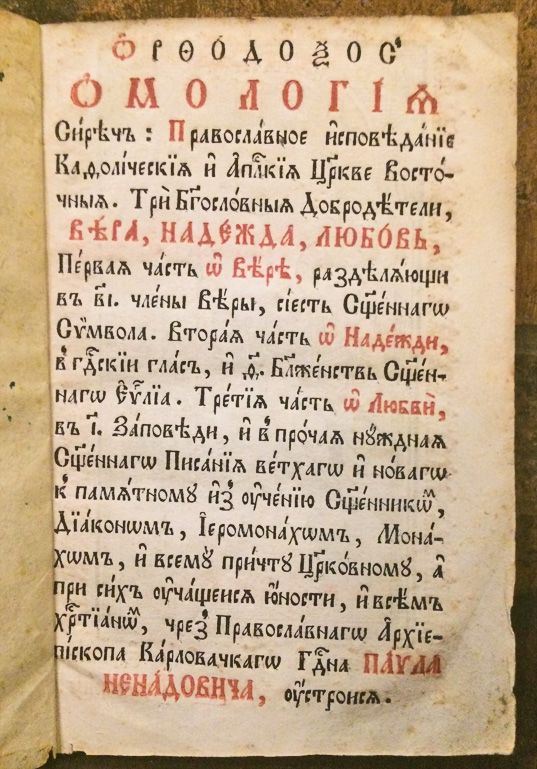 Ѻ҆РѲО́ДОѮОС꙽
Ѻ҆МОЛОГІ́Ѧ
Си́рѣчъ : Правосла́вное и҆сповѣ́данїе
Каѳолі́ческїѧ и҆ А҆пⷭ҇лкїѧ Цр҃кве Восто́-
чныѧ. Трѝ Бг҃осло́вныѧ Добродѣ́тели,
ВѢ́РА, НАДЕ́ЖДА, ЛЮБО́ВЬ,
Пе́рваѧ ча́сть ѡ҆ Вѣ́рѣ, раздѣлѧ́ющи
въ в҃і. чле́ны Вѣ́ры, сі́есть Сщ҃е́ннагѡ
Сѷ́мвола. Втора́ѧ ча́сть ѡ҆ Наде́жди,
в̾ гдⷭ҇скїи гла́съ, и҆ ѳ҃. Бл҃же́нствъ Сщ҃е́н-
нагѡ Е҆ѵⷢ҇лїа. Тре́тїѧ ча́сть ѡ҆ Любвѝ,
въ і҃. За́повѣди, и҆ в̾ про́чаѧ нꙋ́жднаѧ
Сщ҃е́ннагѡ Писа́нїѧ ве́тхагѡ и҆ но́вагѡ
к̾ памѧ́тному и҆з̾ оу҆че́нїю Сщ҃е́нникѡⷨ,
Дїа́кѡнѡмъ, І҆еромона́хѡмъ, Мона́-
хѡмъ, и҆ всемꙋ̀ при́чту Цр҃ко́вному, а҆
при си́хъ оу҆ча́щеисѧ ю҆́ности, и҆ всѣ́мъ
хрⷭ҇тїа́нѡⷨ, чрез̾ Правосла́внагѡ А҆рхїе-
пі́скопа Ка́рловачкагѡ Гдⷭ҇на ПА́ѴЛА
НЕНА́ДОВИЧА, оу҆строисѧ.